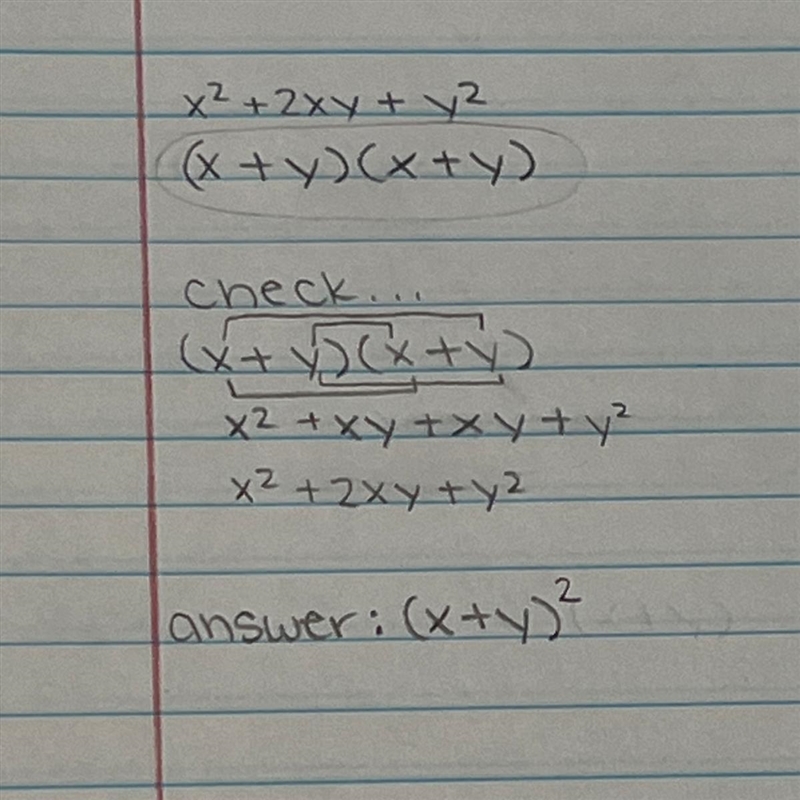 x² + 2xy + y²
(x + y)(x + y)
check...
(x + y)(x + y)
x² + xy + xy + y²
x² + 2xy + y²
answer: (x+y)²